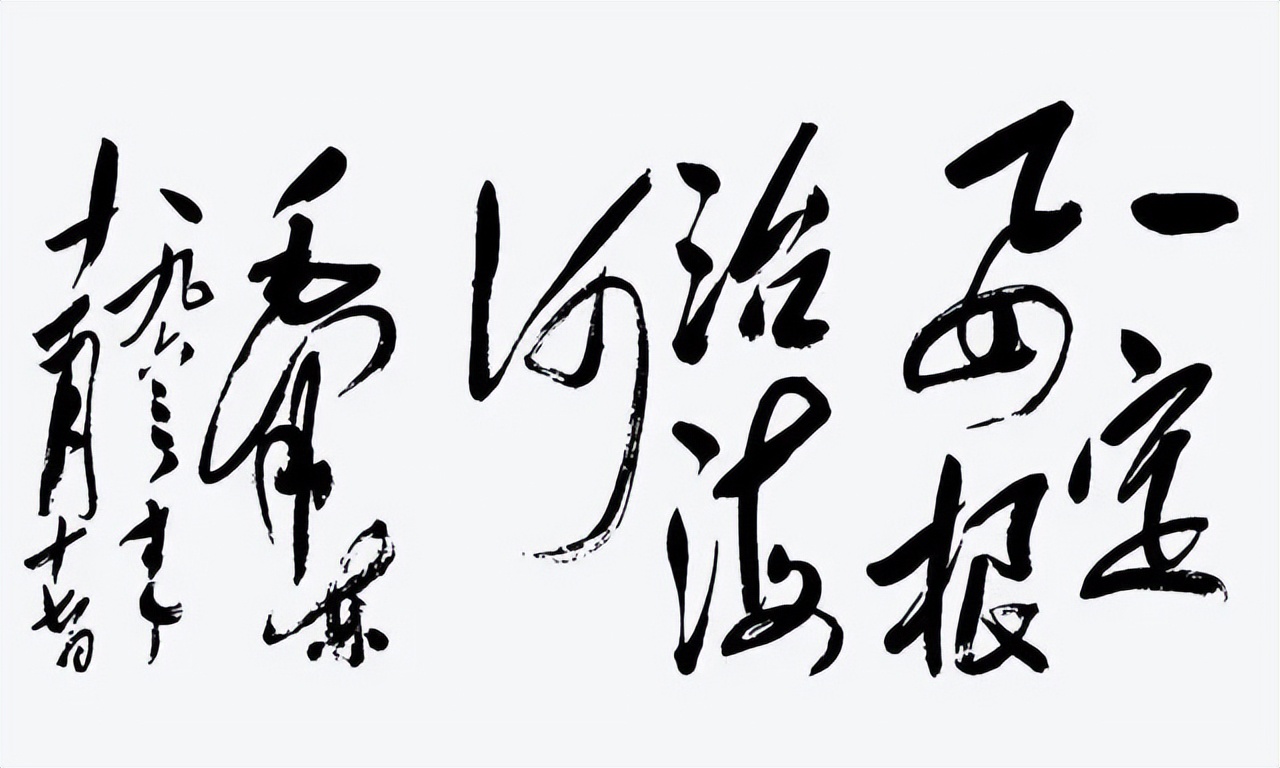 一定
要根
治海
河
毛澤東
一九六三年
十一月十七日